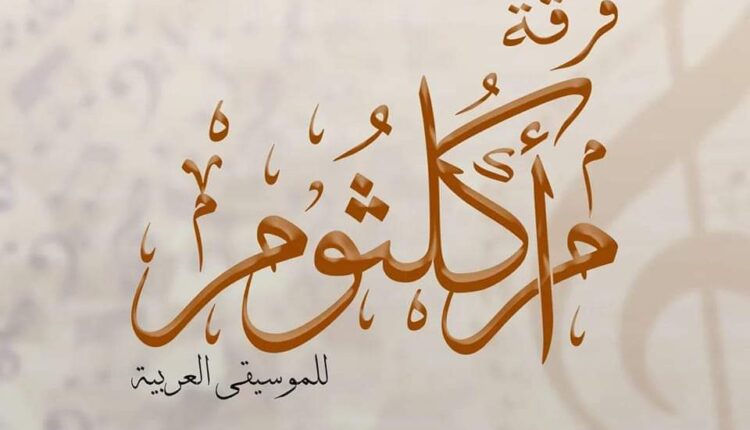 فرقة
أم كلثوم
للموسيقى العربية